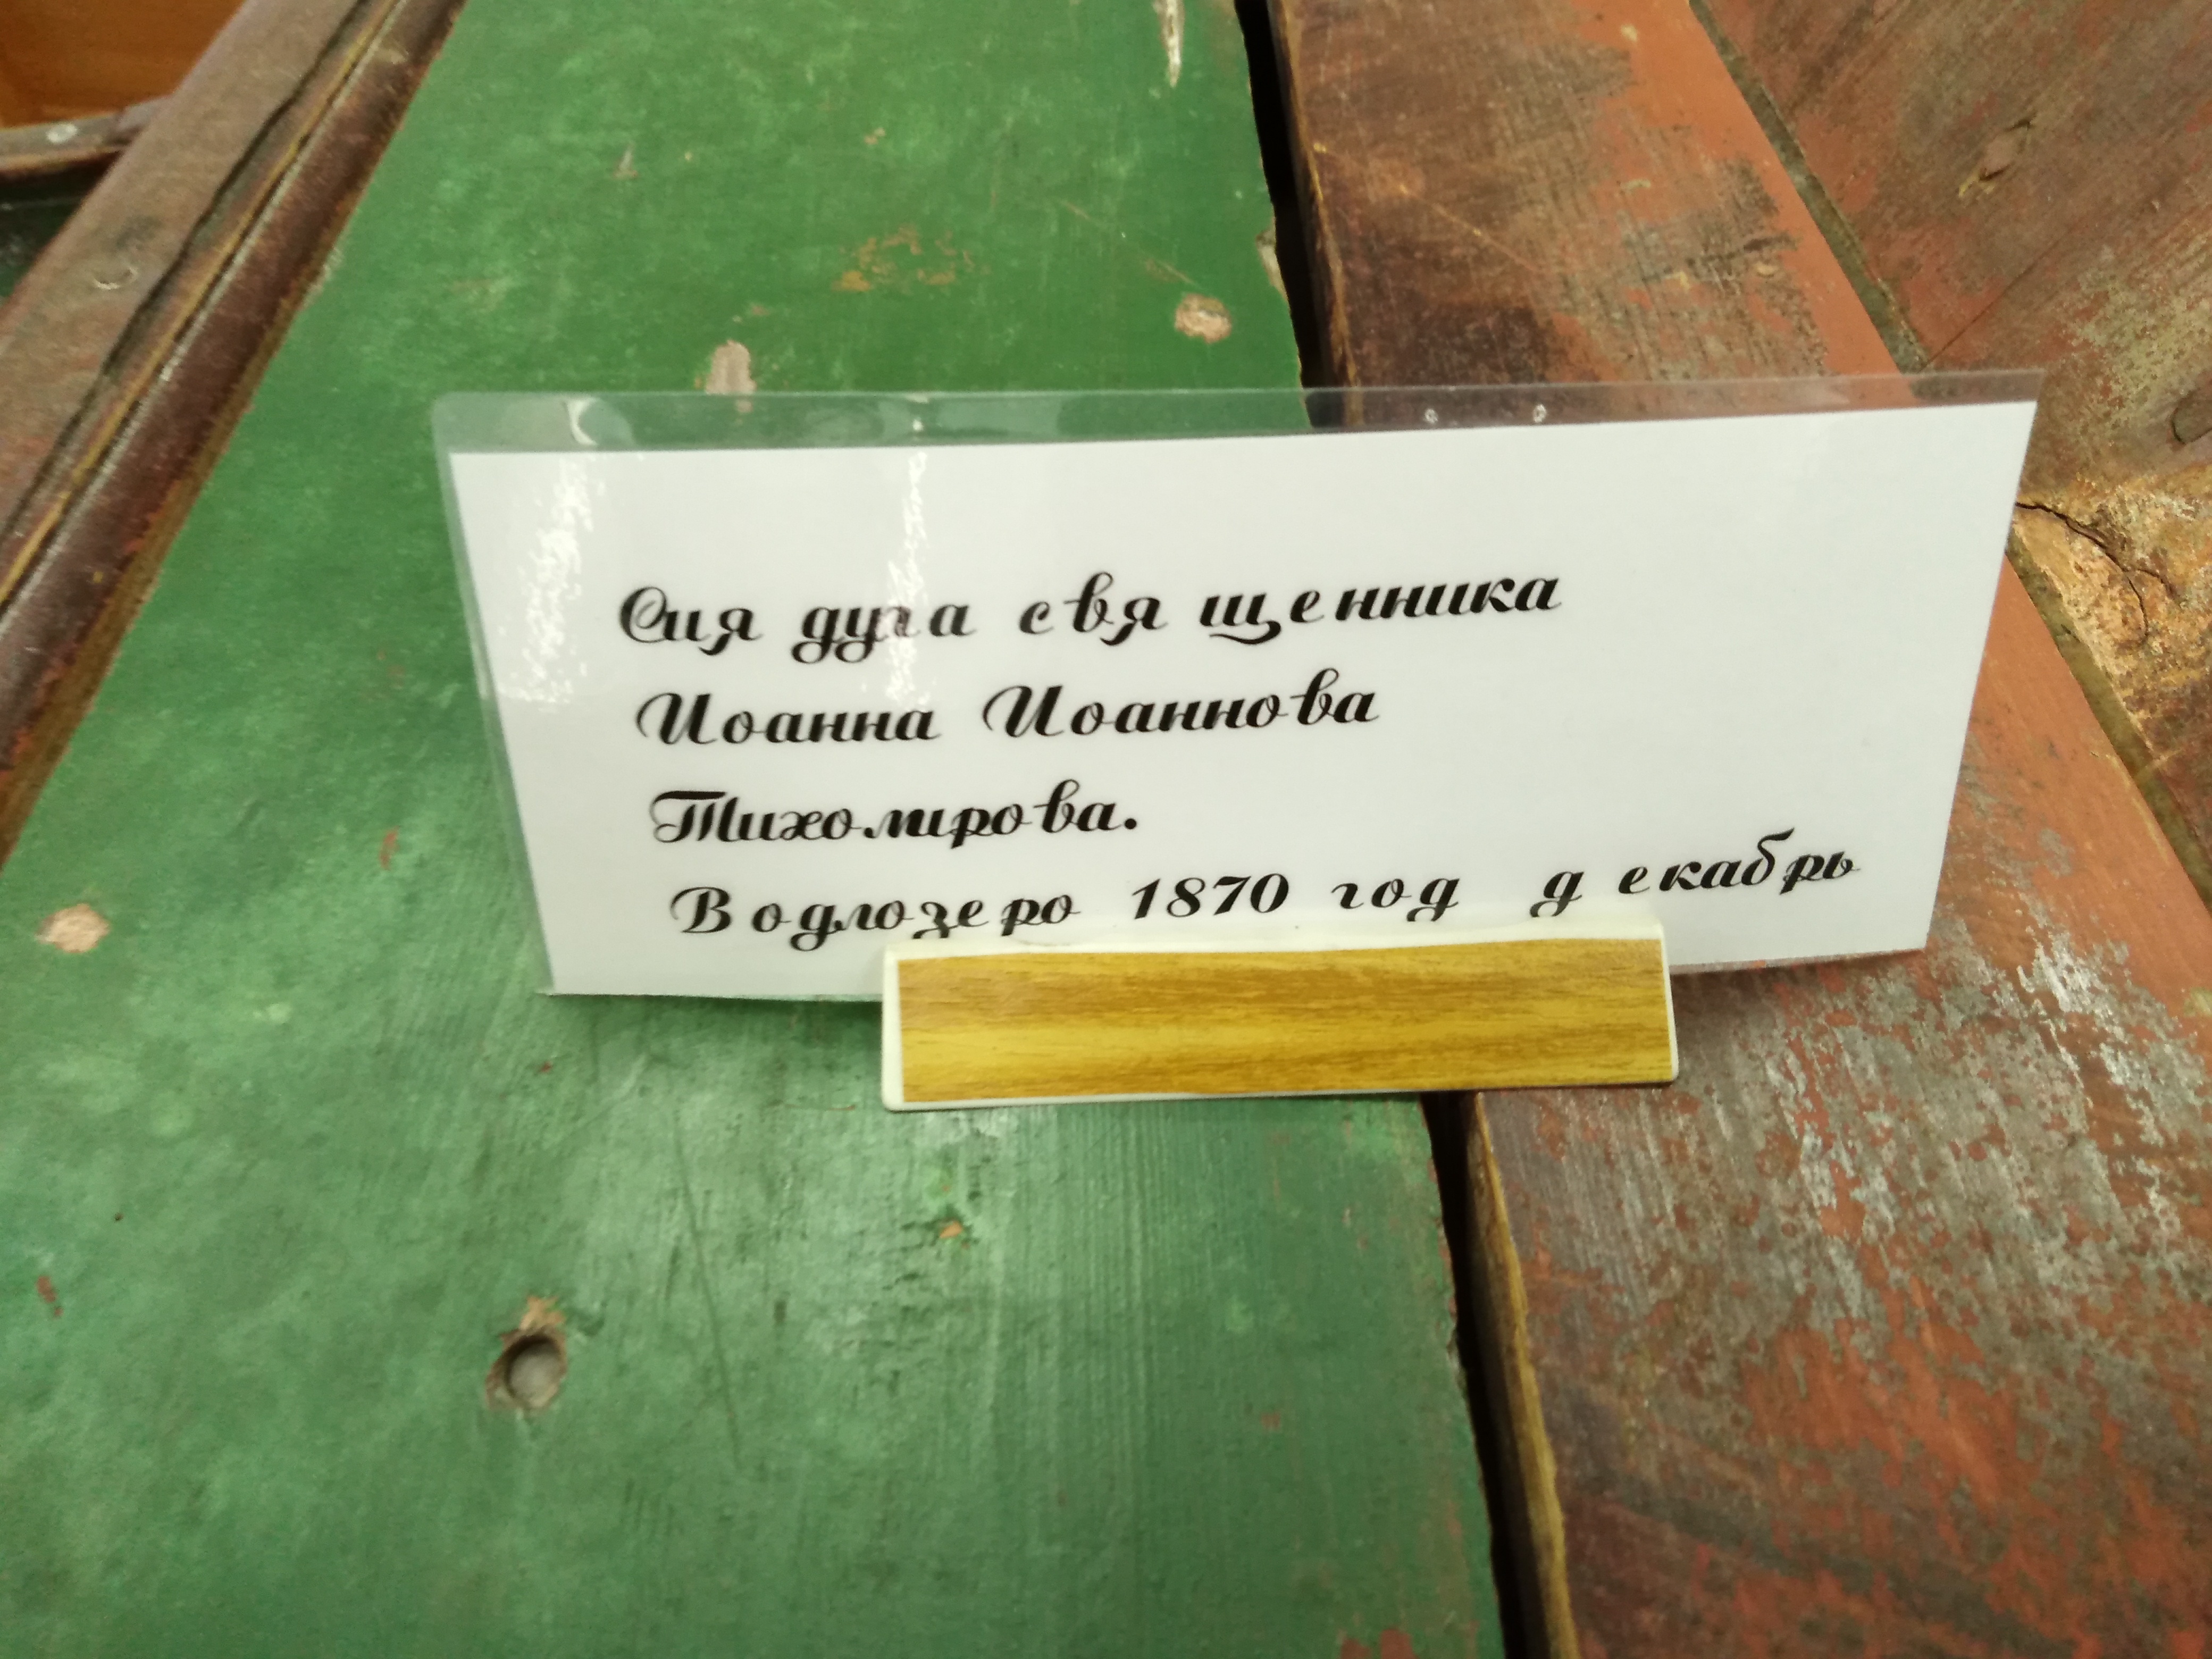 Сия дуга священника
Иоанна Иоаннова
Тихомирова.
Водлозеро 1870 год декабрь